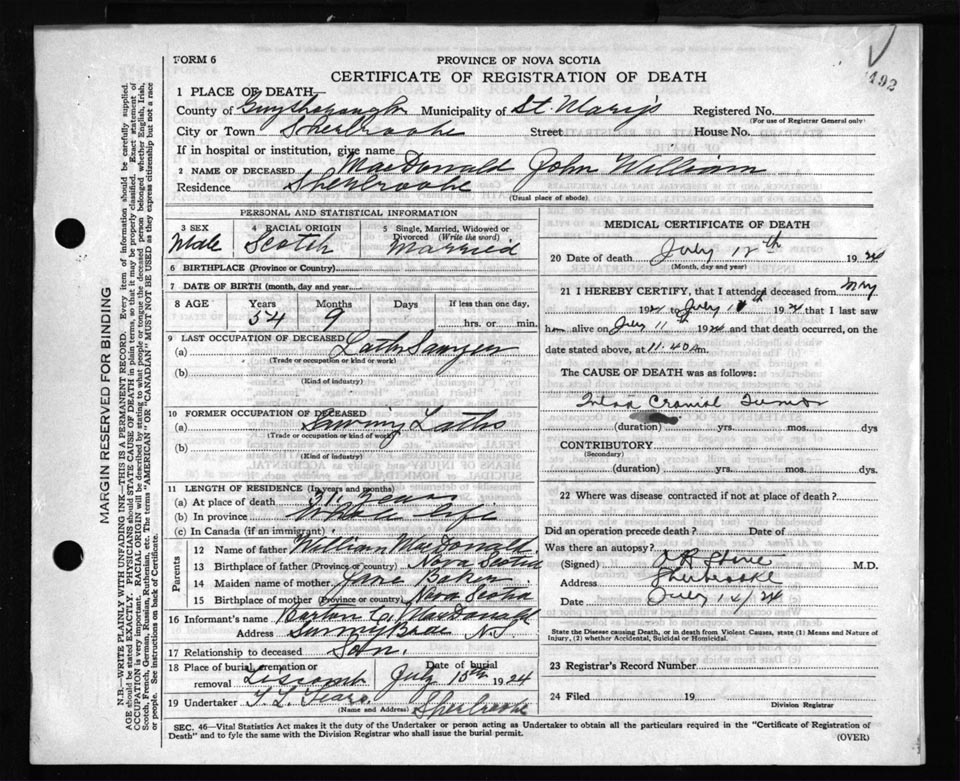 FORM 6
PROVINCE OF NOVA SCOTIA
CERTIFICATE OF REGISTRATION OF DEATH
192
1 PLACE OF DEATH—
County of Guysborough Municipality of St. Mary's Registered No.
(For use of Registrar General only)
City or Town Sherbrooke Street House No.
If in hospital or institution, give name
2 NAME OF DECEASED MacDonald John William
Residence Sherbrooke
(Usual place of abode)
PERSONAL AND STATISTICAL INFORMATION
3 SEX
Male
4 RACIAL ORIGIN
Scotch
5 Single, Married, Widowed or Divorced (Write the word)
Married
6 BIRTHPLACE (Province or Country)
7 DATE OF BIRTH (month, day and year)
8 AGE Years Months Days If less than one day,
54 9 hrs. or min.
9 LAST OCCUPATION OF DECEASED
(a) Lath Sawyer
(Trade or occupation or kind or work)
(b)
(Kind of industry)
10 FORMER OCCUPATION OF DECEASED
(a) Sawing Laths
(Trade or occupation or kind of work)
(b)
(Kind of industry)
11 LENGTH OF RESIDENCE (In years and months)
(a) At place of death 31 years
(b) In province Whole life
(c) In Canada (if an immigrant)
Parents
12 Name of father William MacDonald
13 Birthplace of father (Province or country) Nova Scotia
14 Maiden name of mother Jane Baker
15 Birthplace of mother (Province or country) Nova Scotia
16 Informant's name Burton C. MacDonald
Address Sunny Brae N.S.
17 Relationship to deceased Son.
18 Place of burial, cremation or removal Liscomb Date of burial July 15th 1924
19 Undertaker
(Name and Address) Sherbrooke
MEDICAL CERTIFICATE OF DEATH
20 Date of death July 12th 1924
(Month, day and year)
21 I HEREBY CERTIFY, that I attended deceased from May
192 to July 1924 that I last saw
him alive on July 11th 1924 and that death occurred, on the
date stated above, at 11.40 a.m.
The CAUSE OF DEATH was as follows:
Intra Cranial Tumor
(duration) yrs. mos. dys
CONTRIBUTORY
(Secondary)
(duration) yrs. mos. dys
22 Where was disease contracted if not at place of death?
Did an operation precede death? Date of
Was there an autopsy?
(Signed) M.D.
Address Sherbrooke
Date July 14/24
State the Disease causing Death, or in death from Violent Causes, state (1) Means and Nature of
Injury, (2) whether Accidental, Suicidal or Homicidal.
23 Registrar's Record Number
24 Filed 19
Division Registrar
SEC. 46—Vital Statistics Act makes it the duty of the Undertaker or person acting as Undertaker to obtain all the particulars required in the "Certificate of Registration of
Death" and to fyle the same with the Division Registrar who shall issue the burial permit.
(OVER)
MARGIN RESERVED FOR BINDING
N.B.—WRITE PLAINLY WITH UNFADING INK—THIS IS A PERMANENT RECORD. Every item of information should be carefully supplied.
AGE should be stated EXACTLY. PHYSICIANS should STATE CAUSE OF DEATH in plain terms, so that it may be properly classified. Exact statement of
OCCUPATION is very important. RACIAL ORIGIN will be described by stating to what people or tongue the deceased person belonged whether English, Irish,
Scotch, French, German, Russian, Ruthenian, etc. The terms "AMERICAN" OR "CANADIAN" MUST NOT BE USED as they express citizenship but not a race
or people. See instructions on back of Certificate.